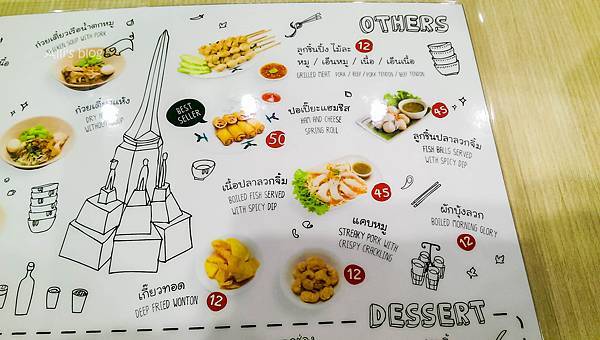 OTHERS
ก๋วยเตี๋ยวเรือน้ำตกหมู
SOUP WITH PORK
blog
ก๋วยเตี๋ยวแห้ง
ลูกชิ้นปิ้ง ไม้ละ 12
หมู / เอ็นหมู / เนื้อ / เอ็นเนื้อ
GRILLED MEAT PORK / BEEF / PORK TENDON / BEEF TENDON
BEST
SELLER
ปอเปี๊ยะแฮมชีส
HAM AND CHEESE
SPRING ROLL
50
45
ลูกชิ้นปลาลวกจิ้ม
FISH BALLS SERVED
WITH SPICY DIP
เนื้อปลาลวกจิ้ม
BOILED FISH SERVED
WITH SPICY DIP
45
ผักบุ้งลวก
BOILED MORNING GLORY
12
แคบหมู
STREAKY PORK WITH
CRISPY CRACKLING
12
เกี๊ยวทอด
DEEP FRIED WONTON
12
DESSERT